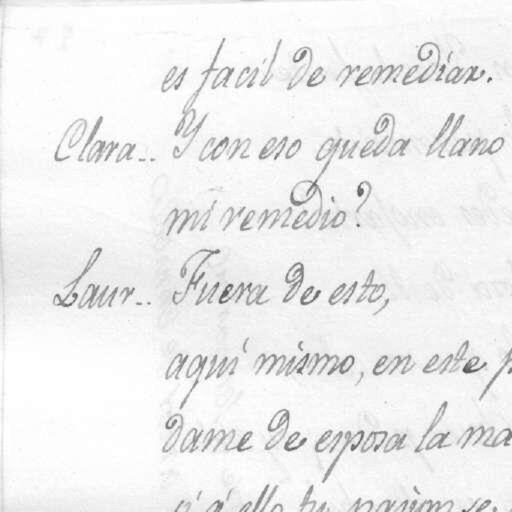 es facil de remediar.
Clara.. Y con eso queda llano
mi remedio?
Laur.. Fuera de esto,
aquí mismo, en este p
dame de esposa la ma
si á ello tu